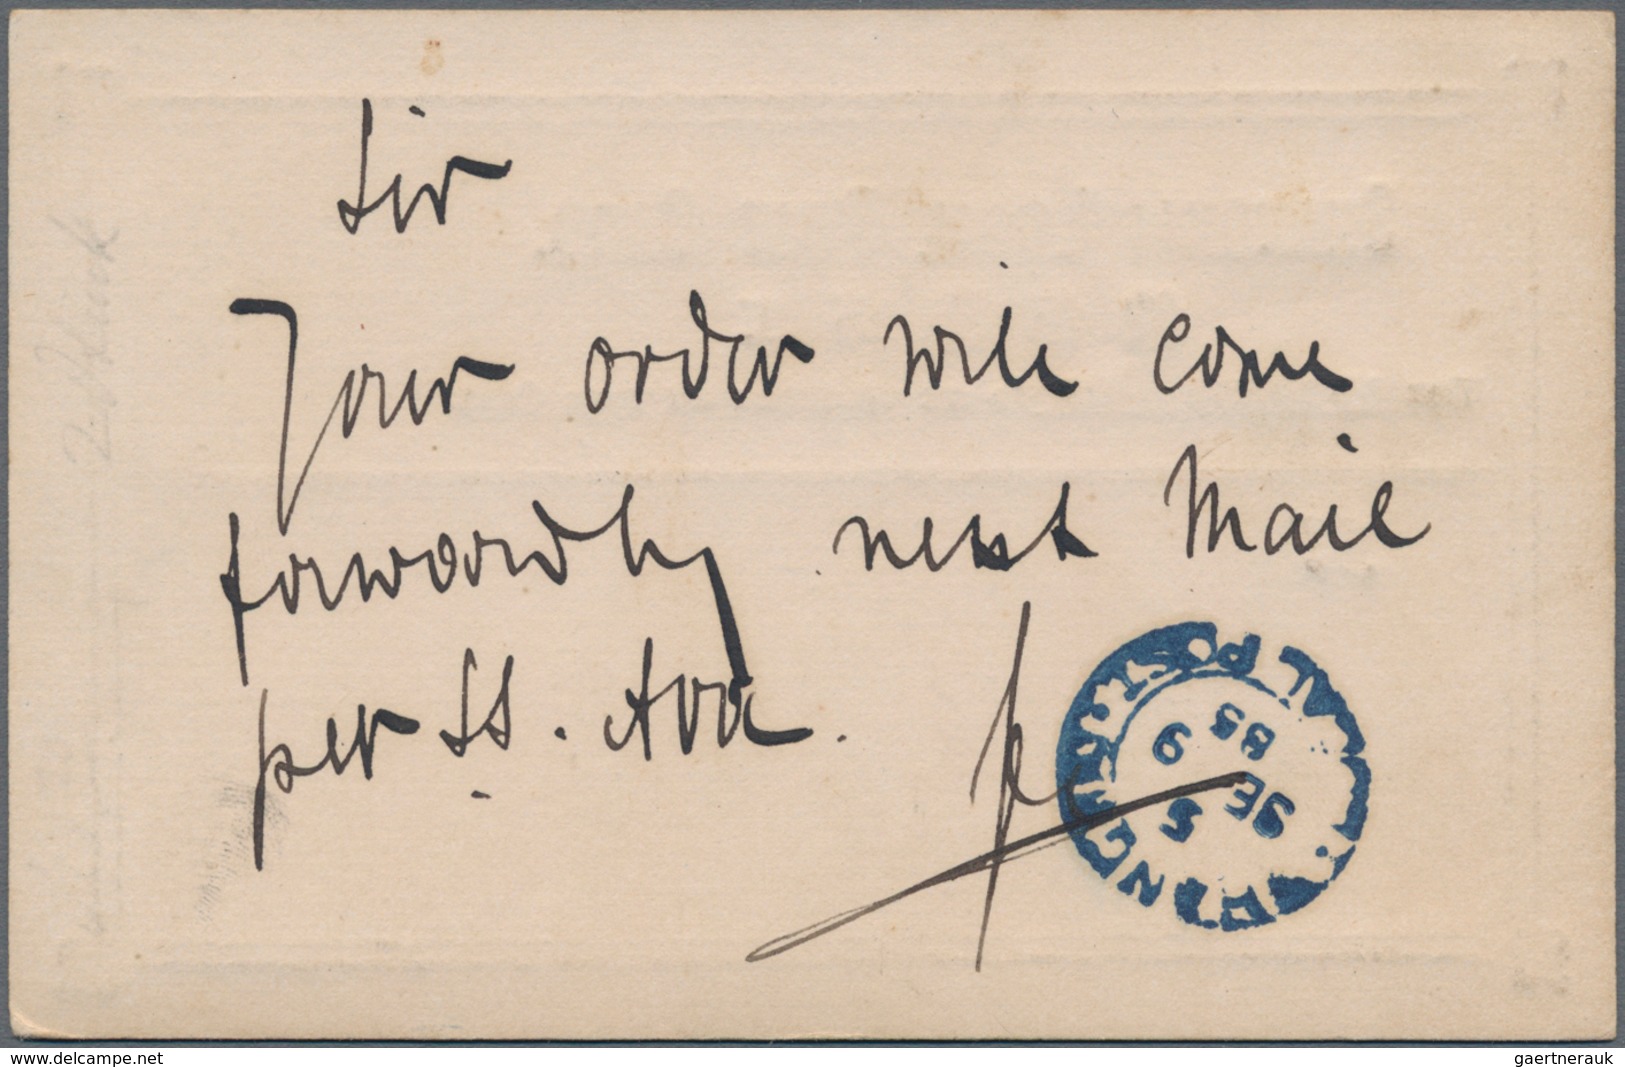 Sir
Your order will come
forwardly next Mail
per SS. Ava.
5
SE
9
85
www.delcampe.net
gaertnerauk